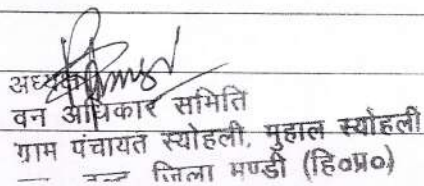 अध्यक्ष
वन अधिकार समिति
ग्राम पंचायत स्योहली, मुहाल स्योहली
जिला मण्डी (हि०प्र०)